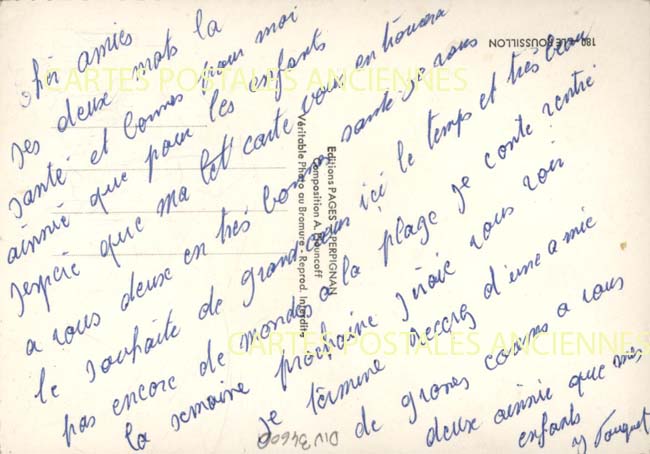 chér amies
ses deux mots la
santé et bonnes pour moi
ainnié que pour les enfants
J'espéré que ma let carte vous entrouvera
a vous deux en très bonne santé je vous
le souhaite de grand cœurs içi le temps et très beau
pas encore de mondes a la plage je conte rentré
la semaine prochaine J'iraie vous voir
je termine recevez d'une amie
de grones a vous
deux ainnié que mes
enfants
y Fouquet
180 - LE ROUSSILLON
Editions PAGES - PERPIGNAN
Composition A.
Véritable Photo au Bromure - Reprod. Interdite
DIV 34600
CARTES POSTALES ANCIENNES
CARTES POSTALES ANCIENNES